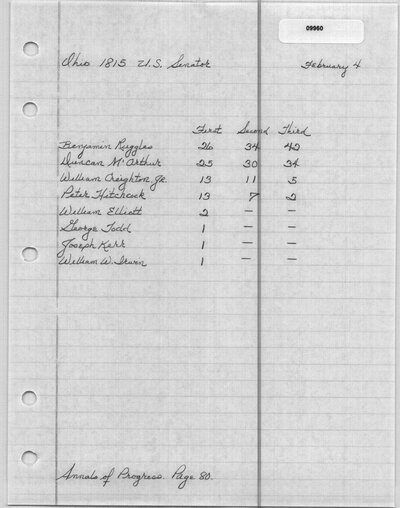 09960
Ohio 1815 U.S. Senator February 4
First Second Third
Benjamin Ruggles 26 34 42
Duncan McArthur 25 30 34
William Creighton, Jr. 13 11 5
Peter Hitchcock 13 7 2
William Elliott 2 — —
George Todd 1 — —
Joseph Kerr 1 — —
William W. Irwin 1 — —
Annals of Progress. Page 80.